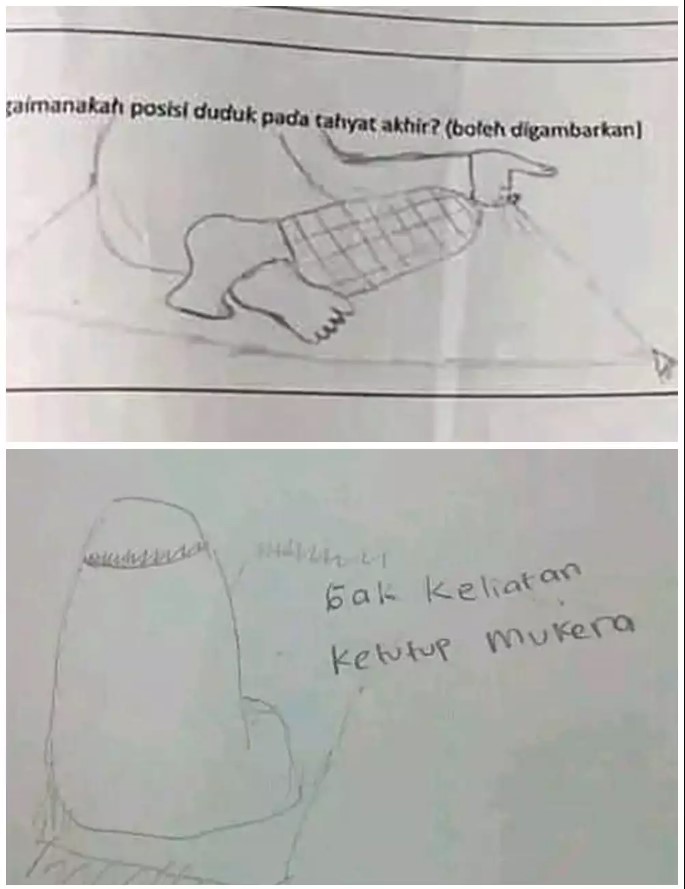 gaimanakah posisi duduk pada tahyat akhir? (boleh digambarkan)
Gak Keliatan
Ketutup Mukena